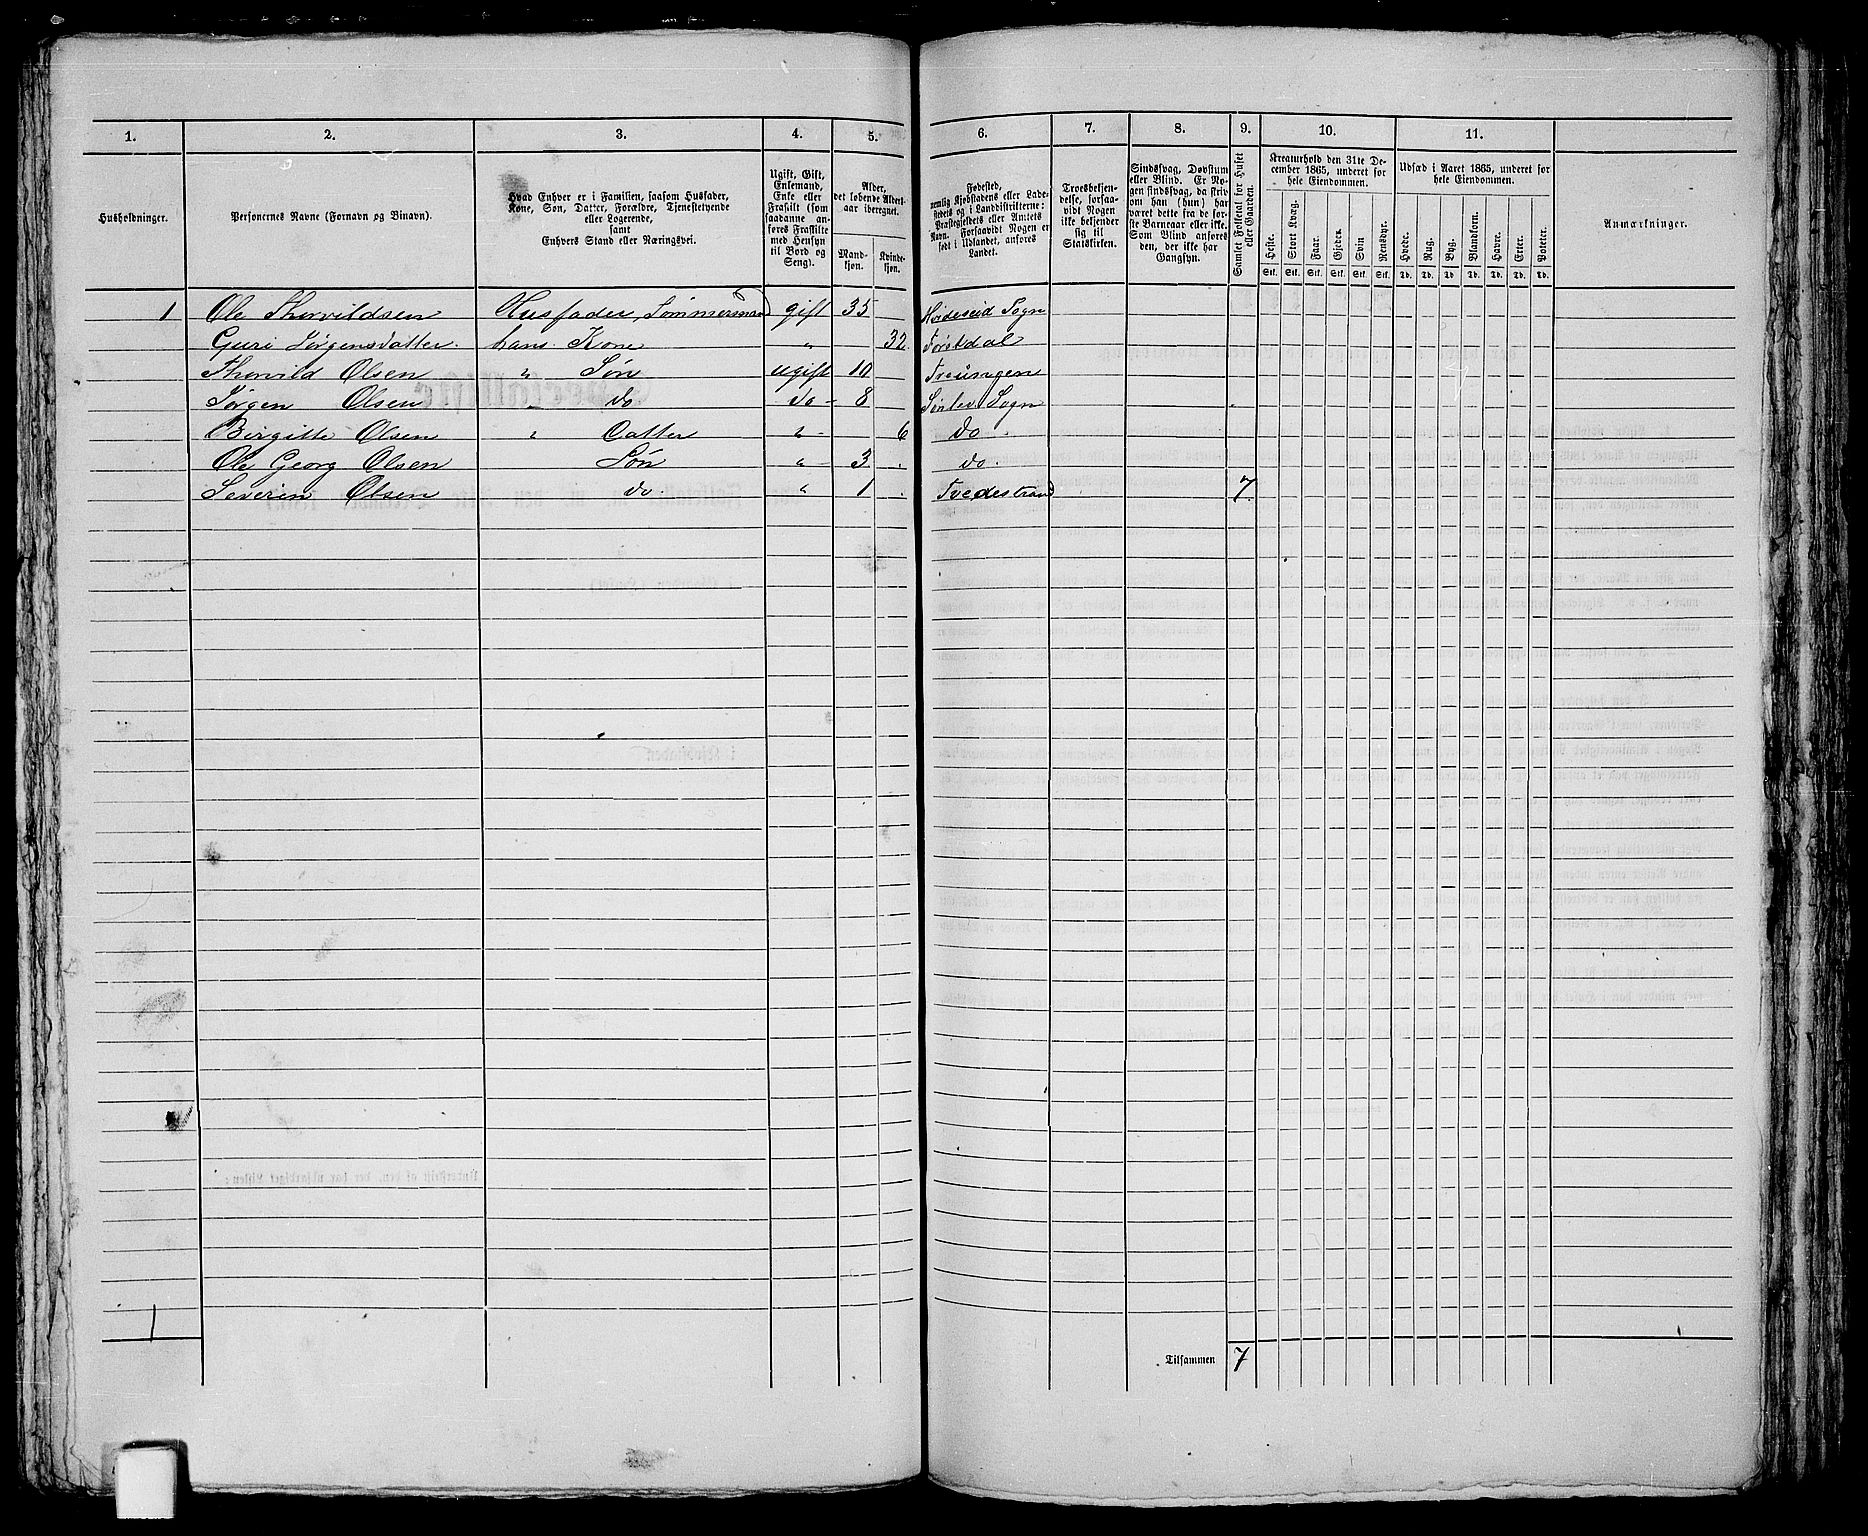 1. 2. 3. 4. 5. 6. 7. 8. 9. 10. 11.
Husholdninger.
Personernes Navne (Fornavn og Binavn).
Hvad Enhver er i Familien, saasom Husfader,
Kone, Søn, Datter, Forældre, Tjenestetyende
eller Logerende,
samt
Enhvers Stand eller Næringsvei.
Ugift, Gift,
Enkemand,
Enke eller
Fraskilt (som
saadanne an-
føres Fraskilte
med Hensyn
til Bord og
Seng).
Alder,
det løbende Alders-
aar iberegnet.
Mand-
kjøn.
Kvinde-
kjøn.
Fødested,
nemlig Kjøbstadens eller Lade-
stedets og i Landdistrikterne:
Præstegjeldets eller Amtets
Navn. Forsaavidt Nogen er
født i Udlandet, anføres
Landet.
Troesbekjen-
delse, forsaa-
vidt Nogen
ikke bekjender
sig til
Statskirken.
Sindssvag, Døvstum
eller Blind. Er No-
gen sindssvag, da skriv
om han (hun) har
været dette fra de før-
ste Barneaar eller ikke.
Som Blind anføres
den, der ikke har
Gangsyn.
Samlet Folketal for Huset
eller Gaarden.
Kreaturhold den 31te De-
cember 1865, underet for
hele Eiendommen.
Heste. Stort Kvæg. Faar. Gjeder. Svin Rensdyr.
Stk. Stk. Stk. Stk. Stk. Stk.
Udsæd i Aaret 1865, underet for
hele Eiendommen.
Hvede. Rug. Byg. Blandkorn. Havre. Erter. Poteter.
Td. Td. Td. Td. Td. Td. Td.
Anmærkninger.
1 Ole Thorvildsen Husfader, Tømmermand gift 35 Hvideseid Sogn
Guri Jørgensdatter. hans Kone " 32 Tørdal
Thorvild Olsen " Søn ugift 10 Treungen
Jørgen Olsen " do do - 8 Søndev Sogn
Birgitte Olsen " Datter " - 6 do
Ole Georg Olsen Søn " - 3 do.
Severin Olsen do. " 1 Tvedestrand 7
1
Tilsammen 7